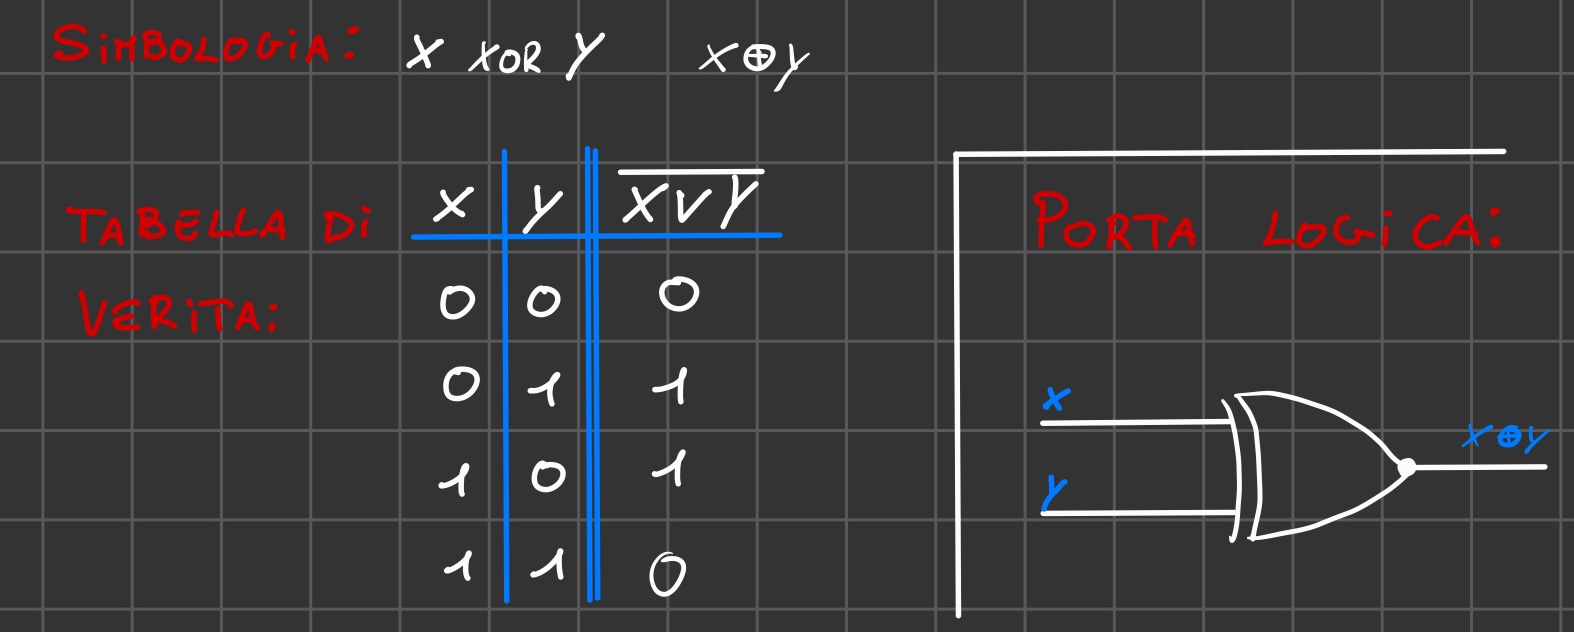 SIMBOLOGIA: X XOR Y X⊕Y
TABELLA DI
VERITA:
X Y X̅ ̅V̅ ̅Y̅
0 0 0
0 1 1
1 0 1
1 1 0
PORTA LOGICA:
X
Y
X⊕Y